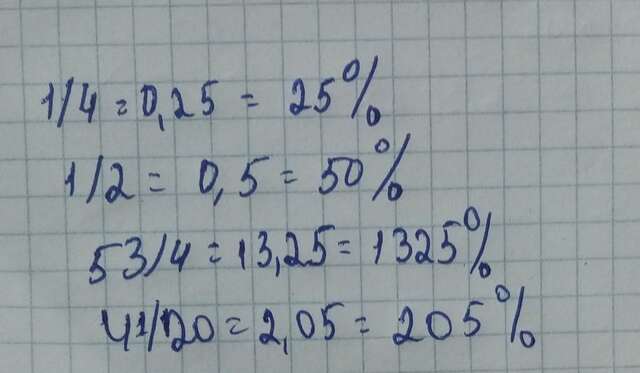 1/4 = 0,25 = 25%
1/2 = 0,5 = 50%
53/4 = 13,25 = 1325%
41/20 = 2,05 = 205%